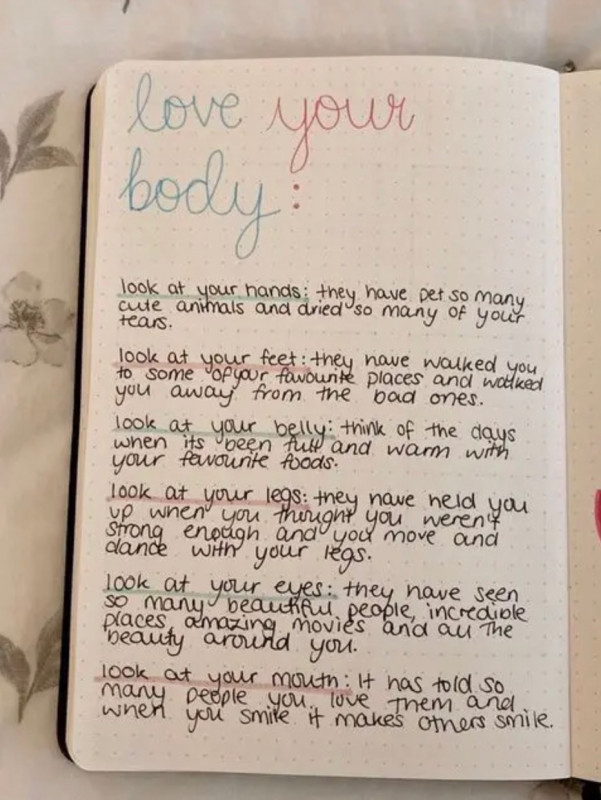 love your
body:
look at your hands: they have pet so many
cute animals and dried so many of your
tears.
look at your feet: they have walked you
to some of your favourite places and walked
you away from the bad ones.
look at your belly: think of the days
when its been full and warm with
your favourite foods.
look at your legs: they have held you
up when you thought you weren't
strong enough and you move and
dance with your legs.
look at your eyes: they have seen
so many beautiful people, incredible
places, amazing movies and all the
beauty around you.
look at your mouth: It has told so
many people you love them and
when you smile it makes others smile.